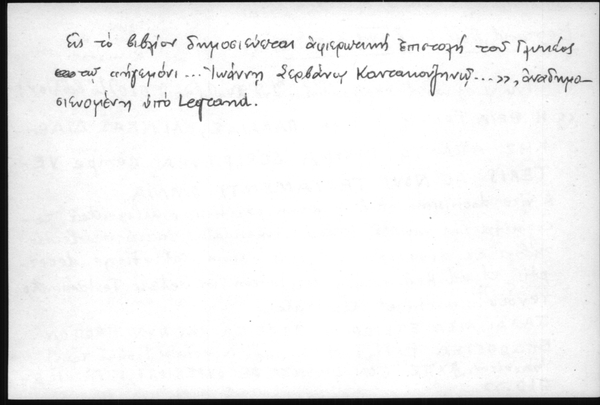 Εἰς τὸ βιβλίον δημοσιεύεται ἀφιερωτικὴ ἐπιστολὴ τοῦ Γλυκέος
τῷ ἡγεμόνι... Ἰωάννῃ Σερβάνῳ Καντακουζηνῷ...», ἀναδημο-
σιευομένη ὑπὸ Legrand.